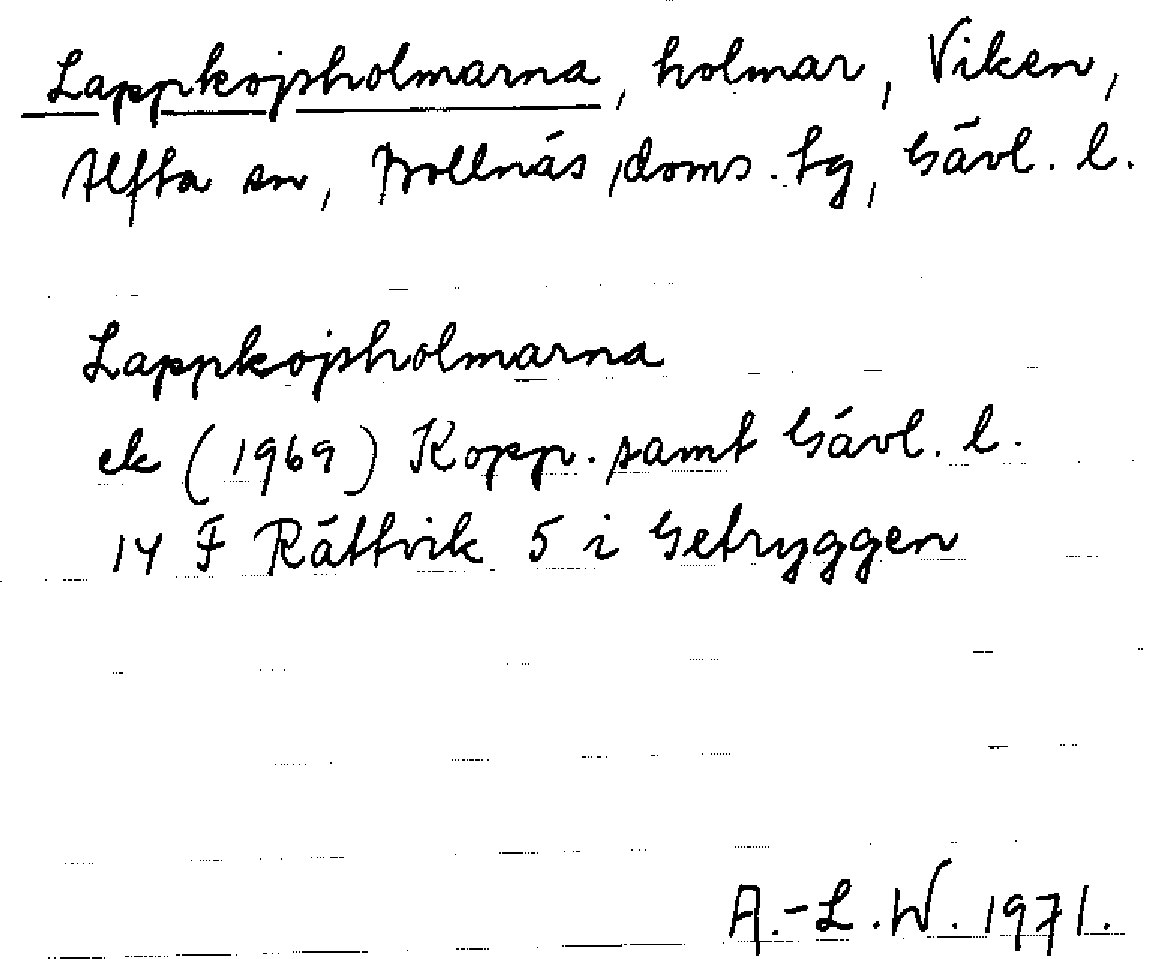 Lappkojsholmarna, holmar, Viken,
Alfta sn, Bollnäs doms. tg, Gävl. l.
Lappkojsholmarna
ek (1969) Kopp. samt Gävl. l.
14 F Rättvik 5 i Getryggen
A.-L. W. 1971.